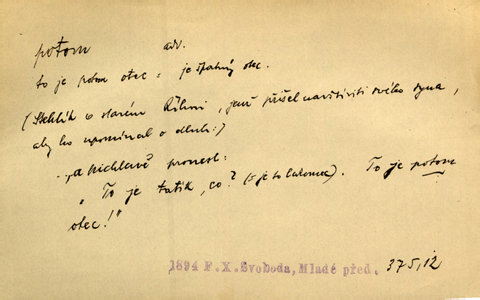 potom adv.
to je potom otec = je špatný otec.
(Stehlík o starém Říhovi, jenž přišel navštíviti svého syna,
aby ho upomínal o dluh:)
„a pronesl:
„To je tatík, co? (= je to lakomec). To je potom
otec!"
1894 F.X.Svoboda, Mladé před. 375,12